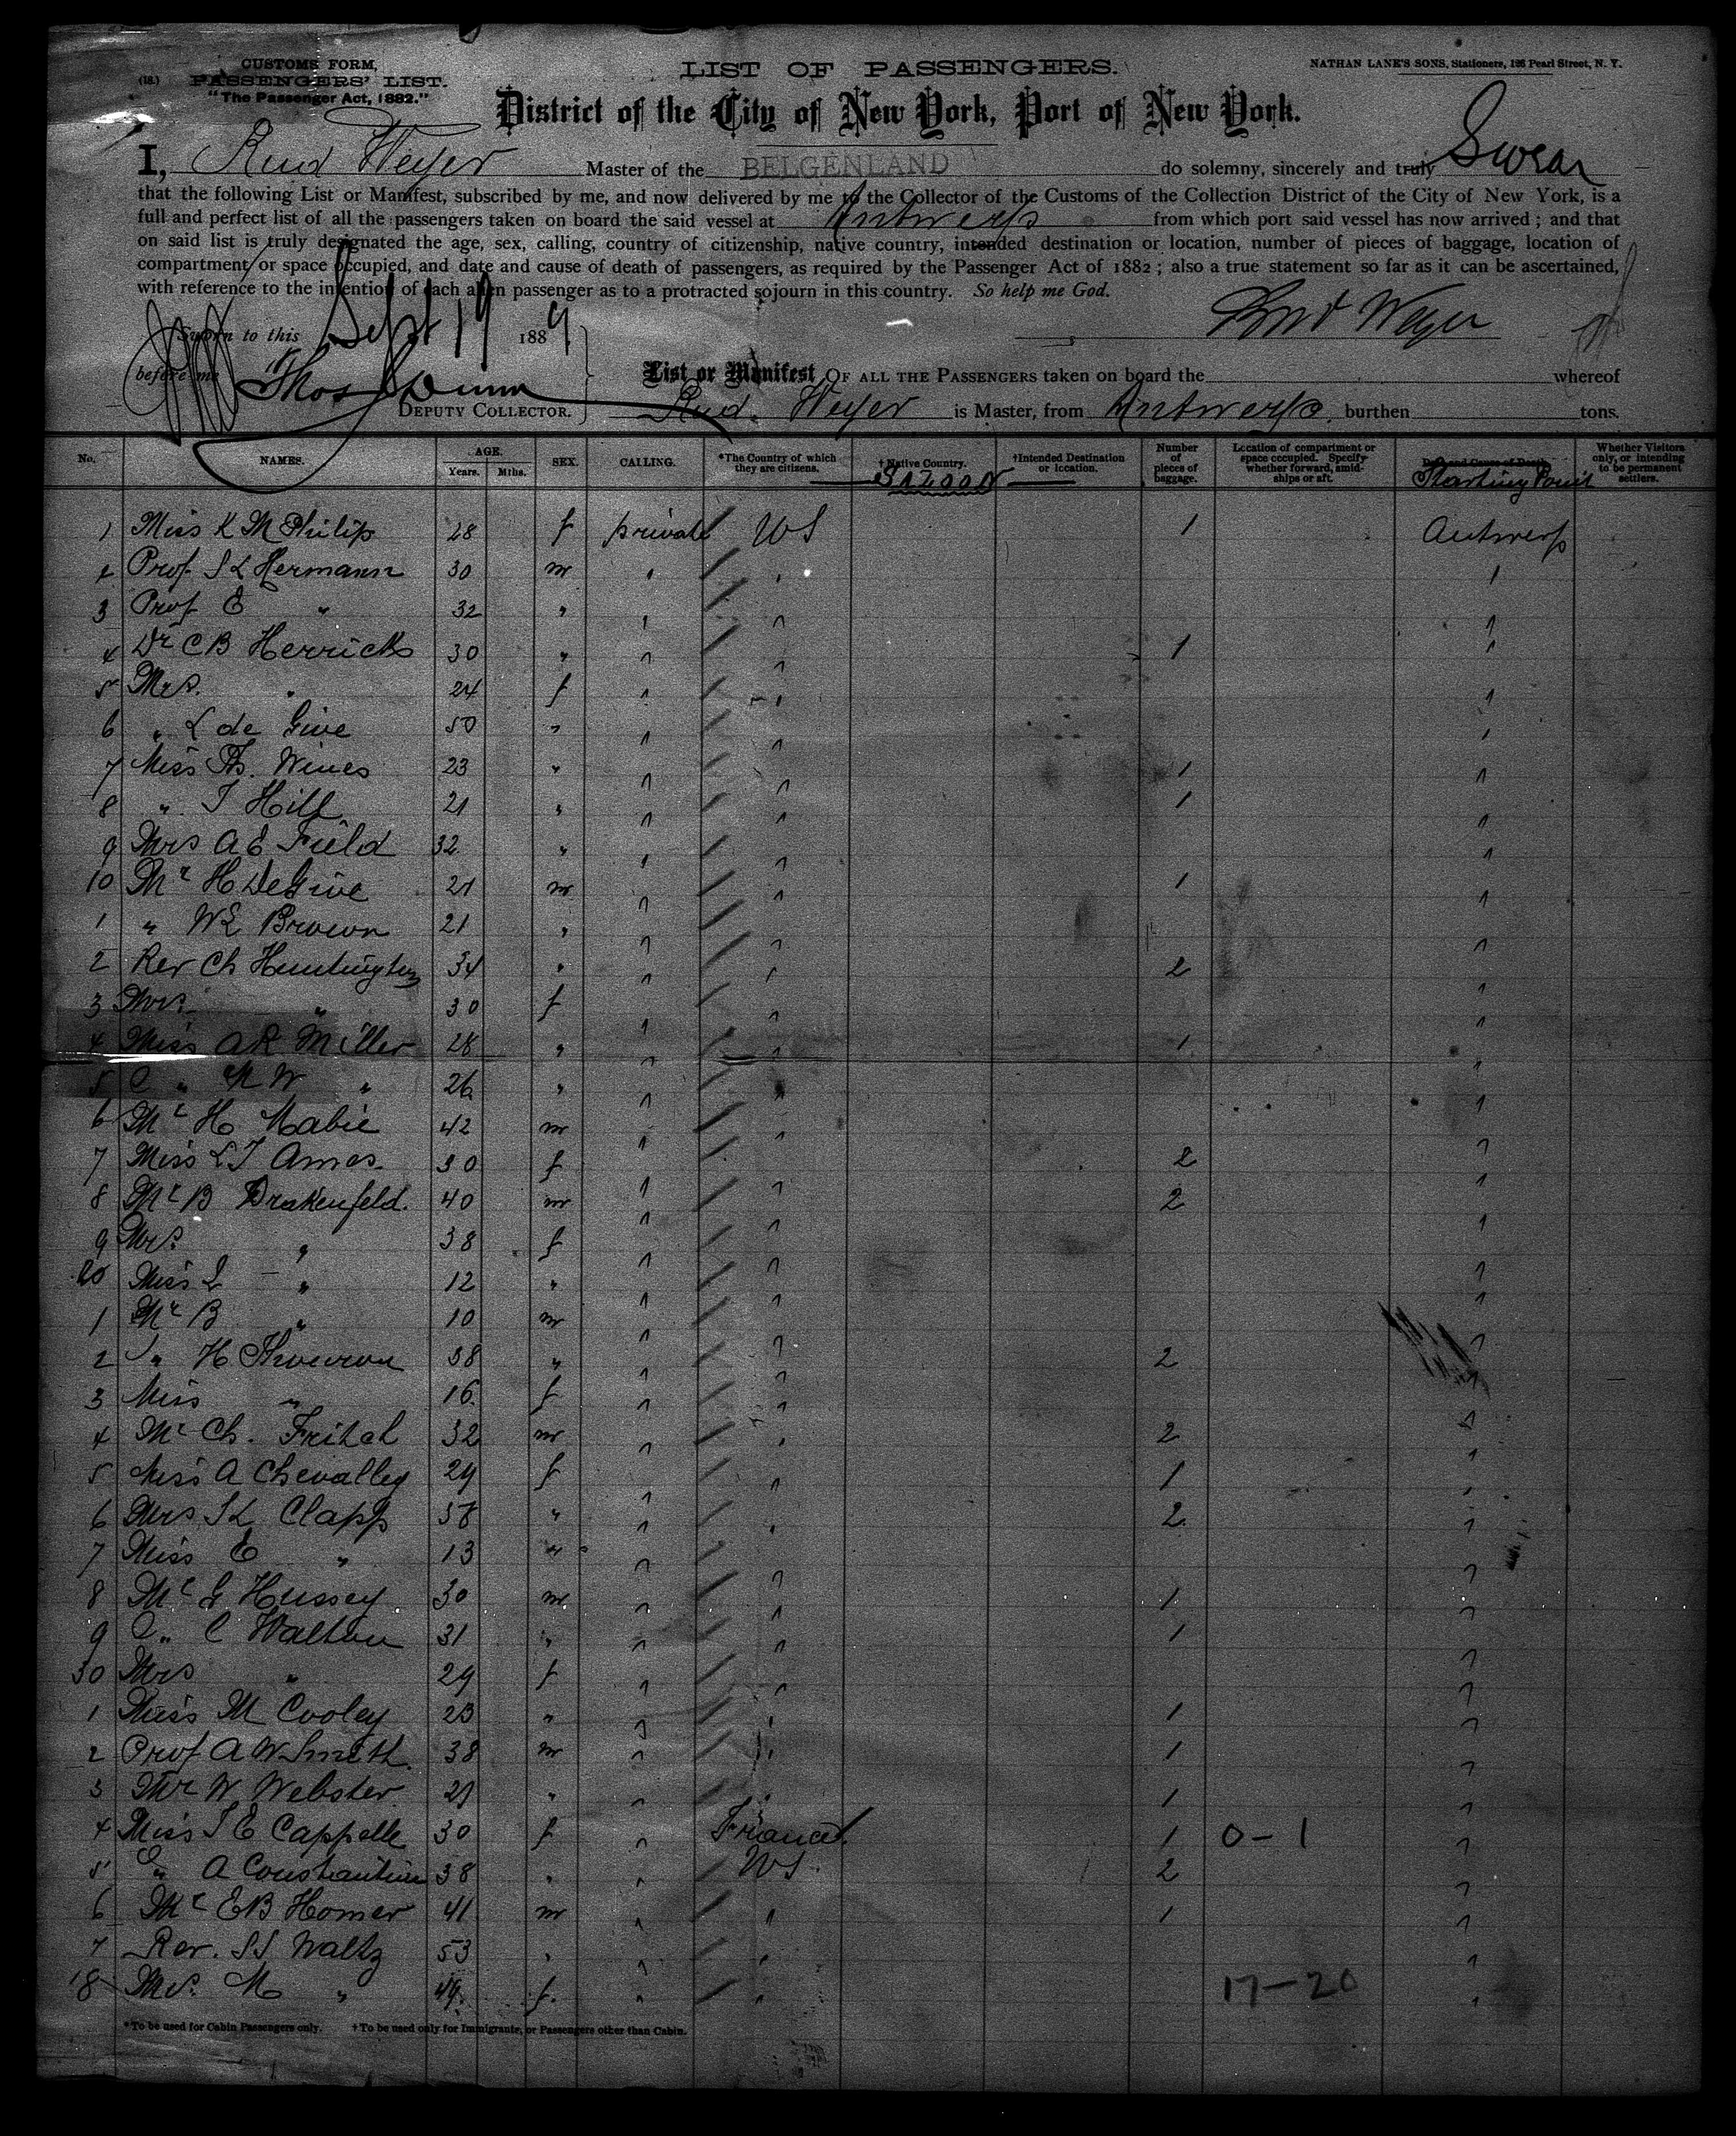 CUSTOMS FORM,
(18.) PASSENGERS' LIST.
"The Passenger Act, 1882."
LIST OF PASSENGERS.
NATHAN LANE'S SONS, Stationers, 126 Pearl Street, N. Y.
District of the City of New York, Port of New York.
I, Rud Weyer Master of the BELGENLAND do solemny, sincerely and truly Swear
that the following List or Manifest, subscribed by me, and now delivered by me to the Collector of the Customs of the Collection District of the City of New York, is a
full and perfect list of all the passengers taken on board the said vessel at Antwerp from which port said vessel has now arrived; and that
on said list is truly designated the age, sex, calling, country of citizenship, native country, intended destination or location, number of pieces of baggage, location of
compartment or space occupied, and date and cause of death of passengers, as required by the Passenger Act of 1882; also a true statement so far as it can be ascertained,
with reference to the intention of each alien passenger as to a protracted sojourn in this country. So help me God.
Sworn to this Sept 19 1889
Rud Weyer
before me Thos Dunn
DEPUTY COLLECTOR.
List or Manifest OF ALL THE PASSENGERS taken on board the whereof
Rud. Weyer is Master, from Antwerp burthen tons.
No. NAMES. AGE. Years. Mths. SEX. CALLING. *The Country of which they are citizens. †Native Country. †Intended Destination or location. Number of pieces of baggage. Location of compartment or space occupied. Specify whether forward, amidships or aft. Date and Cause of Death. Whether Visitors only, or intending to be permanent settlers.
SALOON Starting Point
1 Miss K M Philip 28 f private US 1 Antwerp
2 Prof S L Hermann 30 m " " "
3 Prof E " 32 " " " "
4 Dr C B Herrick 30 " " " 1 "
5 Mrs. " 24 f " " "
6 " L de Give 50 " " " "
7 Miss Th. Wines 23 " " " 1 "
8 " T Hill 21 " " " 1 "
9 Mrs A E Field 32 " " " "
10 Mr H DeGive 21 m " " 1 "
1 " W E Brown 21 " " " "
2 Rev Ch Huntington 34 " " " 2 "
3 Mrs. " 30 f " " "
4 Miss A R Miller 28 " " " 1 "
5 " M W " 26 " " " "
6 Mr H Mabie 42 m " " "
7 Miss L T Ames 30 f " " 2 "
8 Mr B Drakenfeld. 40 m " " 2 "
9 Mrs. " 38 f " " "
20 Miss L " 12 " " " "
1 Mr B " 10 m " " "
2 " H 38 " " " 2 "
3 Miss " 16 f " " "
4 Mr Ch. 32 m " " 2 "
5 Miss A Chevalley 29 f " " 1 "
6 Mrs S L Clapp 38 " " " 2 "
7 Miss E " 13 " " " "
8 Mr G Hussey 30 m " " 1 "
9 " C Walton 31 " " " 1 "
30 Mrs " 29 f " " "
1 Miss M Cooley 23 " " " 1 "
2 Prof A W Smith 38 m " " 1 "
3 Mr W Webster 21 " " " 1 "
4 Miss J E Cappelle 30 f " France 1 0-1 "
5 " A Constantine 38 " " US 2 "
6 Mr E B Homer 41 m " " 1 "
7 Rev. S S Waltz 53 " " " "
8 Mrs. M " 49 f. " " 17-20 "
*To be used for Cabin Passengers only. †To be used only for Immigrants, or Passengers other than Cabin.